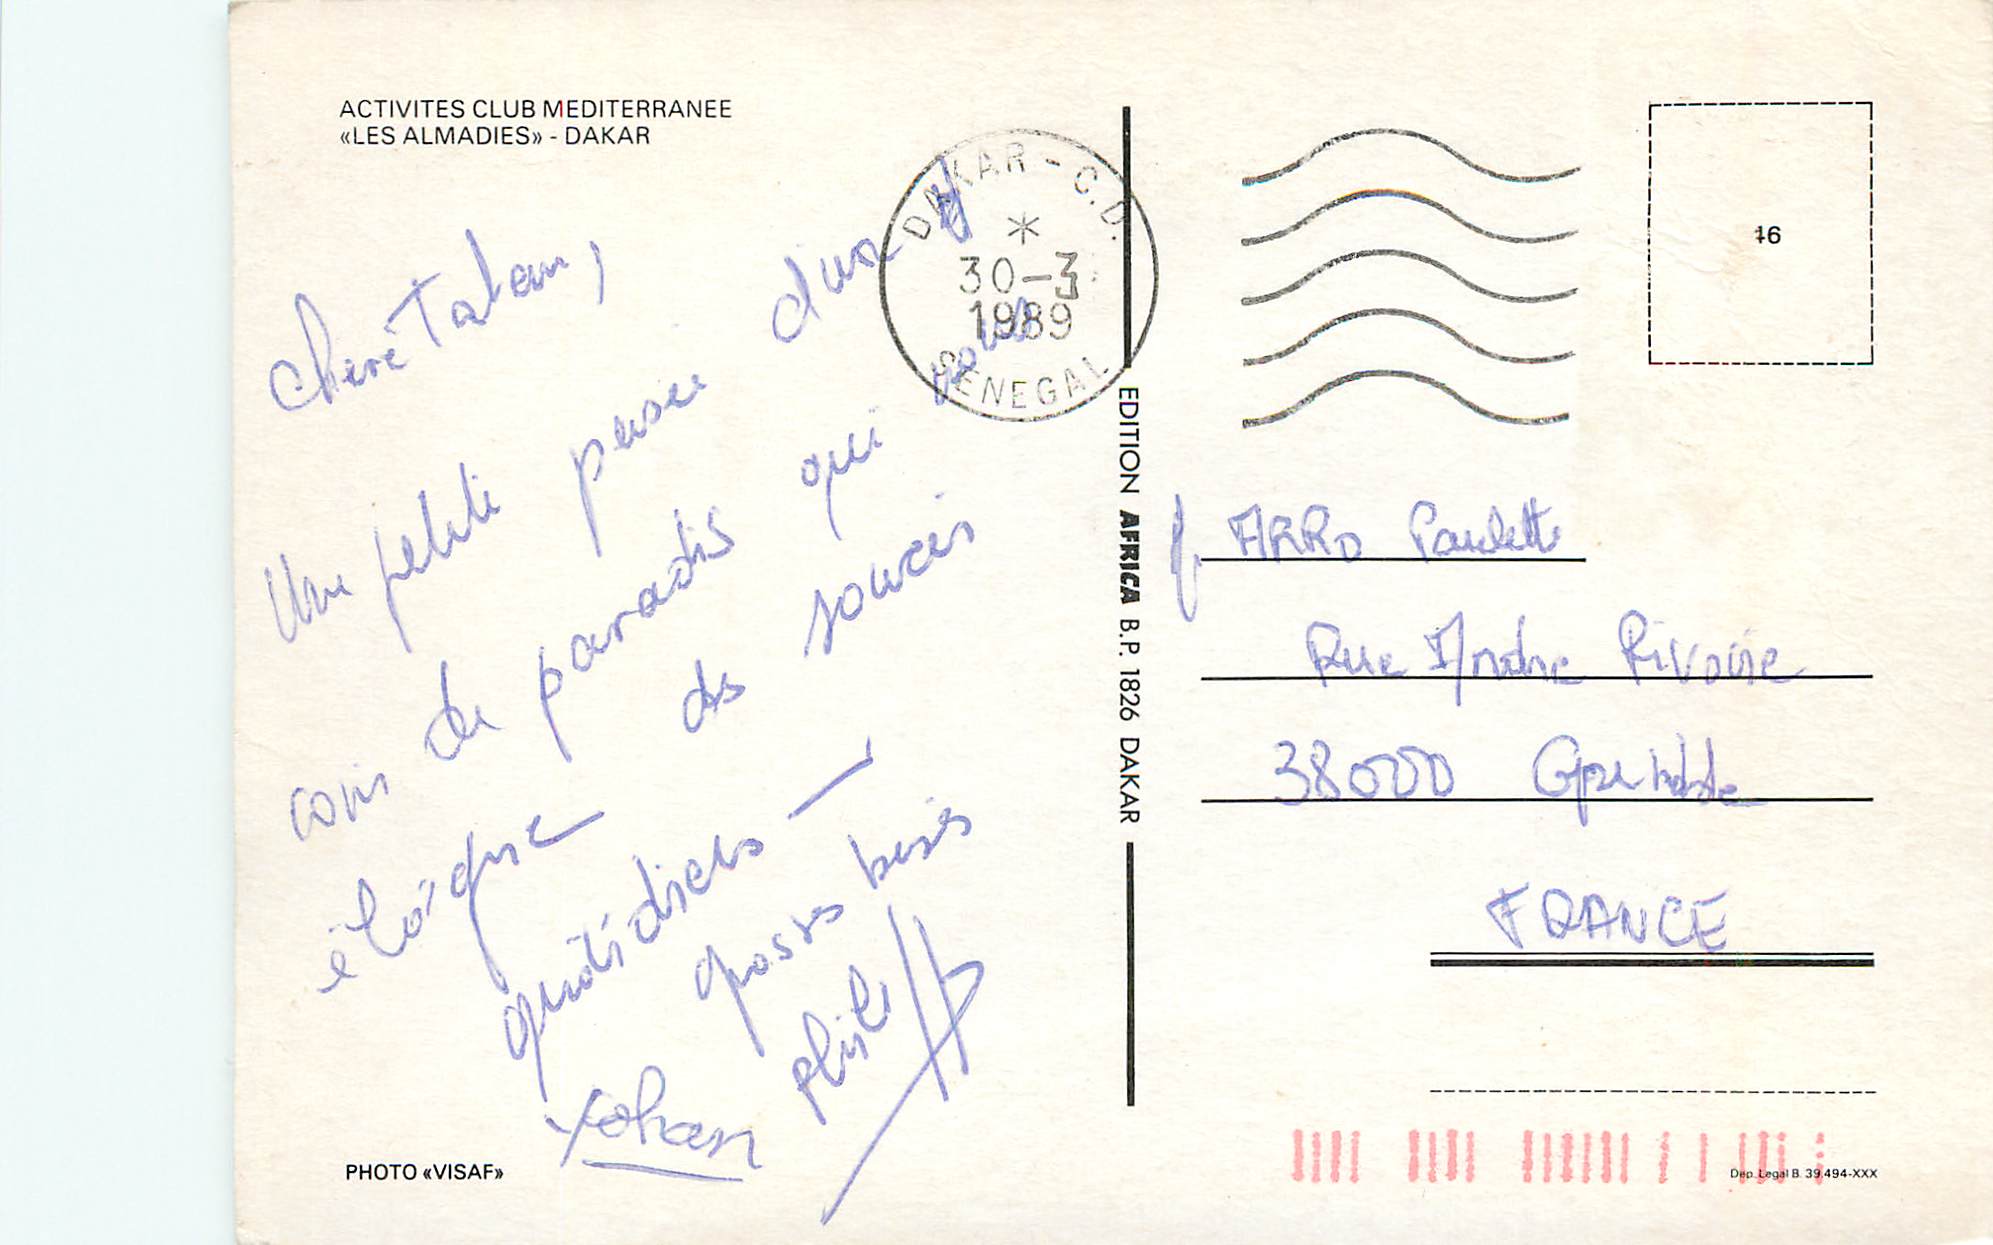 ACTIVITES CLUB MEDITERRANEE
«LES ALMADIES» - DAKAR
DAKAR - C.D.
*
30-3
1989
SENEGAL
16
Chère Tatan,
Une petite pensée d'un
coin de paradis qui vous
éloigne des soucis
quotidiens —
grosses bises
Yohan
PHOTO «VISAF»
EDITION AFRICA B.P. 1826 DAKAR
ARRO Paulette
Rue André Rivoire
38000 Grenoble
FRANCE
Dep. Legal B. 39.494-XXX